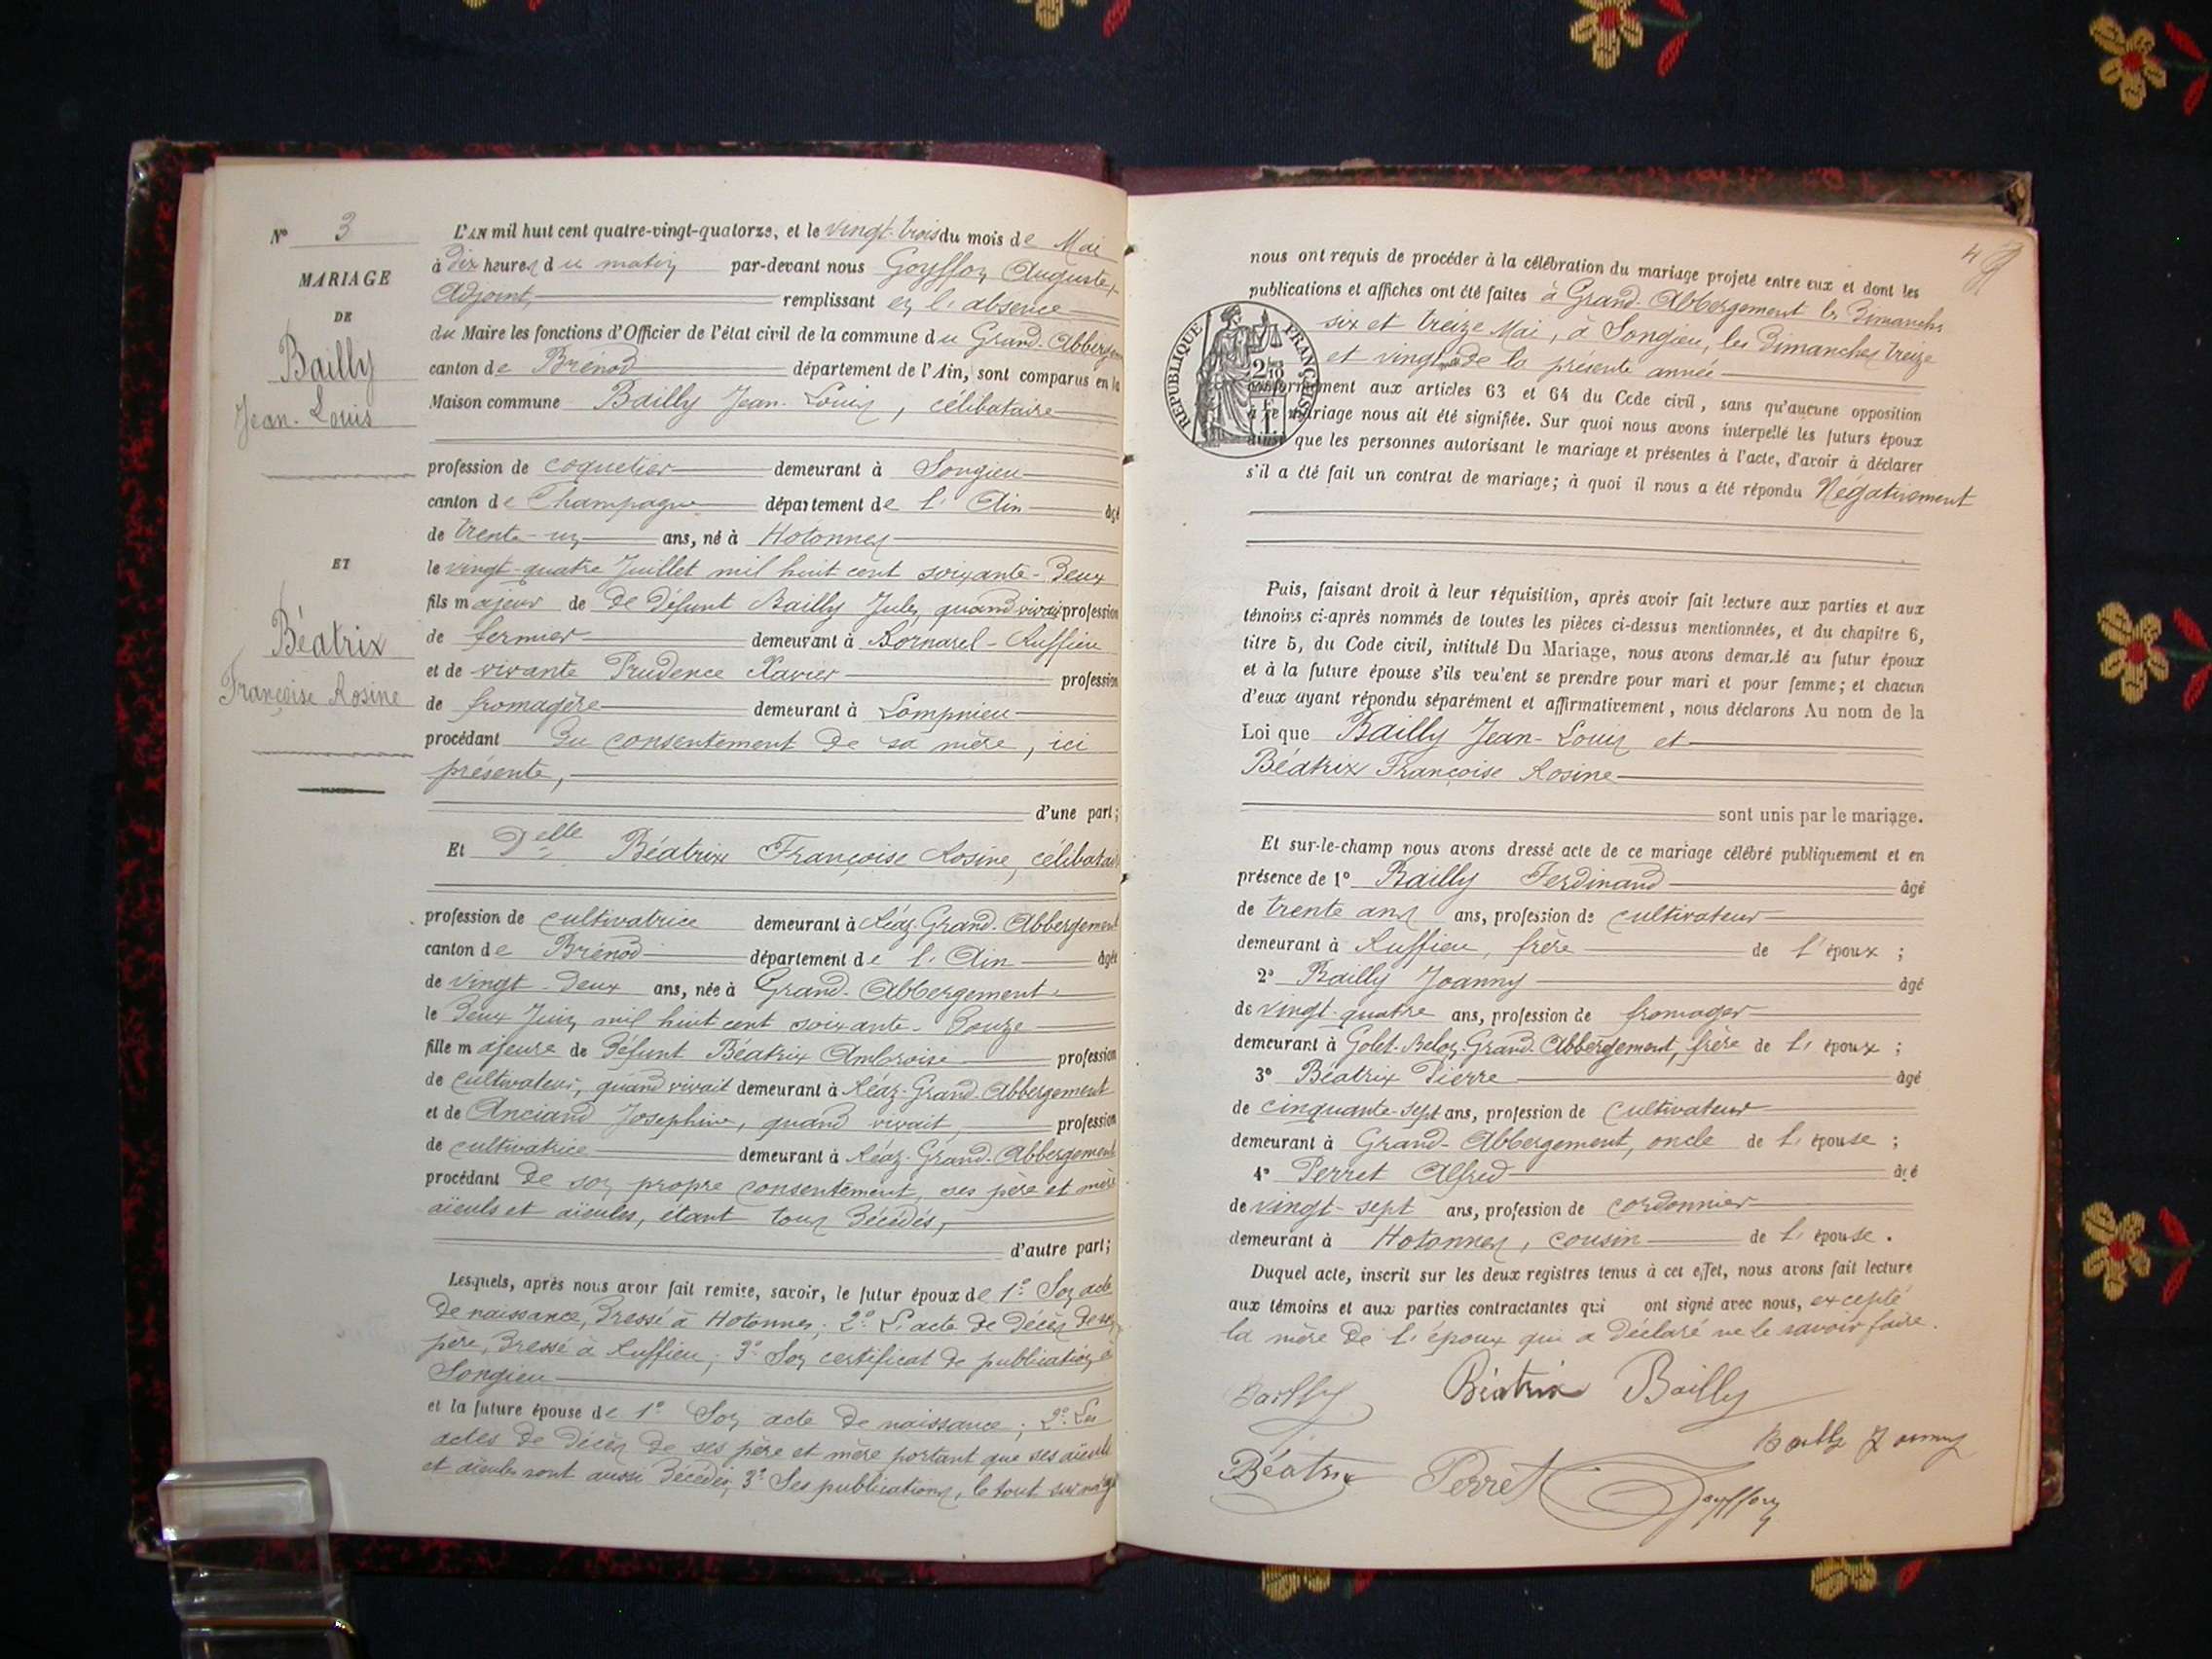 N° 3
MARIAGE
DE
Bailly
Jean-Louis
ET
Béatrix
Françoise Rosine
L'AN mil huit cent quatre-vingt-quatorze, et le vingt-trois du mois de Mai
à dix heures du matin par-devant nous Goyffon Auguste,
Adjoint, remplissant en l'absence
du Maire les fonctions d'Officier de l'état civil de la commune du Grand-Abbergem
canton de Brénod département de l'Ain, sont comparus en la
Maison commune Bailly Jean-Louis, célibataire
profession de coquetier demeurant à Songieu
canton de Champagne département de l'Ain âgé
de trente-un ans, né à Hotonnes
le vingt-quatre Juillet mil huit cent soixante-deux
fils majeur de de défunt Bailly Jules, quand vivait profession
de fermier demeurant à Bornarel-Ruffieu
et de vivante Prudence Xavier profession
de fromagère demeurant à Lompnieu
procédant du consentement de sa mère, ici
présente,
d'une part;
Et Delle Béatrix Françoise Rosine, célibatai
profession de cultivatrice demeurant à Léaz-Grand-Abbergement
canton de Brénod département de l'Ain âgée
de vingt-deux ans, née à Grand-Abbergement
le deux Juin mil huit cent soixante-douze
fille majeure de défunt Béatrix Ambroise profession
de cultivateur, quand vivait demeurant à Léaz-Grand-Abbergement
et de Anciand Josephine, quand vivait, profession
de cultivatrice demeurant à Léaz-Grand-Abbergement
procédant de son propre consentement, ses père et mère
aïeuls et aïeules, étant tous décédés,
d'autre part;
Lesquels, après nous avoir fait remise, savoir, le futur époux de 1° Son acte
de naissance, dressé à Hotonnes; 2° L'acte de décès de son
père, dressé à Ruffieu; 3° Son certificat de publication à
Songieu
et la future épouse de 1° Son acte de naissance; 2° Les
actes de décès de ses père et mère portant que ses aïeuls
et aïeules sont aussi décédés; 3° Ses publications, le tout sur
4
nous ont requis de procéder à la célébration du mariage projeté entre eux et dont les
publications et affiches ont été faites à Grand-Abbergement les Dimanches
six et treize Mai, à Songieu, les Dimanches treize
et vingt de la présente année
conformément aux articles 63 et 64 du Code civil, sans qu'aucune opposition
à ce mariage nous ait été signifiée. Sur quoi nous avons interpellé les futurs époux
ainsi que les personnes autorisant le mariage et présentes à l'acte, d'avoir à déclarer
s'il a été fait un contrat de mariage; à quoi il nous a été répondu Négativement
REPUBLIQUE FRANÇAISE
Puis, faisant droit à leur réquisition, après avoir fait lecture aux parties et aux
témoins ci-après nommés de toutes les pièces ci-dessus mentionnées, et du chapitre 6,
titre 5, du Code civil, intitulé Du Mariage, nous avons demandé au futur époux
et à la future épouse s'ils veulent se prendre pour mari et pour femme; et chacun
d'eux ayant répondu séparément et affirmativement, nous déclarons Au nom de la
Loi que Bailly Jean-Louis et
Béatrix Françoise Rosine
sont unis par le mariage.
Et sur-le-champ nous avons dressé acte de ce mariage célébré publiquement et en
présence de 1° Bailly Ferdinand âgé
de trente ans ans, profession de cultivateur
demeurant à Ruffieu, frère de l'époux;
2° Bailly Joanny âgé
de vingt-quatre ans, profession de fromager
demeurant à Golet-Belon-Grand-Abbergement, frère de l'époux;
3° Béatrix Pierre âgé
de cinquante-sept ans, profession de cultivateur
demeurant à Grand-Abbergement, oncle de l'épouse;
4° Perret Alfred âgé
de vingt-sept ans, profession de cordonnier
demeurant à Hotonnes, cousin de l'épouse.
Duquel acte, inscrit sur les deux registres tenus à cet effet, nous avons fait lecture
aux témoins et aux parties contractantes qui ont signé avec nous, excepté
la mère de l'époux qui a déclaré ne le savoir faire.
Bailly Béatrix Bailly
Bailly Joanny
Béatrix Perret Goyffon